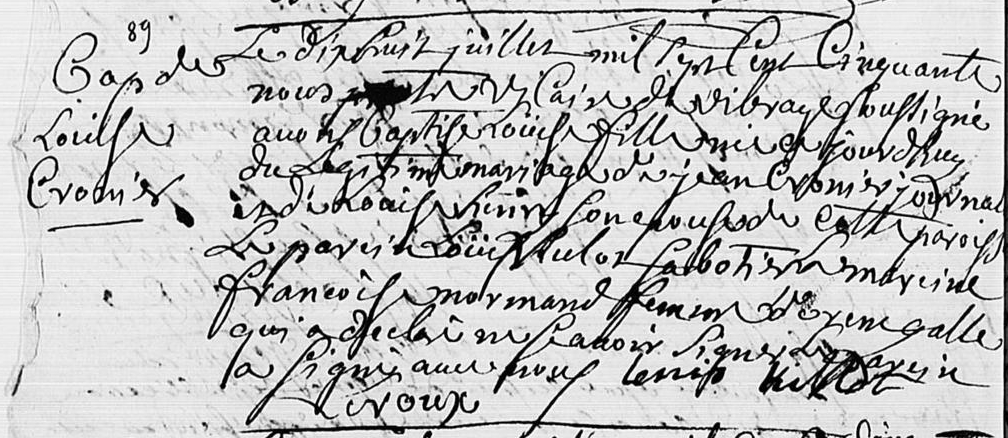 89
Bap de
Louise
Cronier
Le dixhuit juillet mil sept cent cinquante
nous vicaire de vibraye soussigné
avons baptisé Loüise fille née d'jourdhuy
du Légitime mariage de jean Cronier journal
et de Loüise son epouse de cette paroisse
Le parein Loüis hulot sabotier La mareine
francoise normand femme de rene galle
qui a declaré ne scavoir signer Le parein
a signé avec nous Louis hullot
Leroux